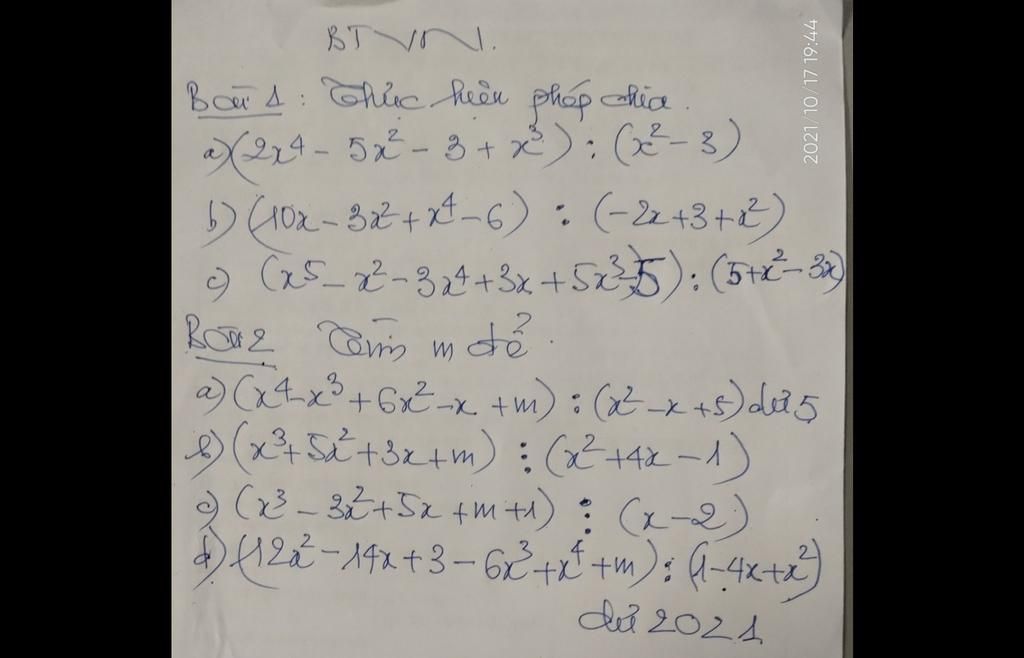 BTVN.
Bài 1: Thực hiện phép chia.
a) (2x⁴ - 5x² - 3 + x³) : (x² - 3)
b) (10x - 3x² + x⁴ - 6) : (-2x + 3 + x²)
c) (x⁵ - x² - 3x⁴ + 3x + 5x³ - 5) : (5 + x² - 3x)
Bài 2 Tìm m để
a) (x⁴ - x³ + 6x² - x + m) : (x² - x + 5) dư 5
b) (x³ + 5x² + 3x + m) ⋮ (x² + 4x - 1)
c) (x³ - 3x² + 5x + m + 1) ⋮ (x - 2)
d) (12x² - 14x + 3 - 6x³ + x⁴ + m) : (1 - 4x + x²)
dư 2021
2021/10/17 19:44